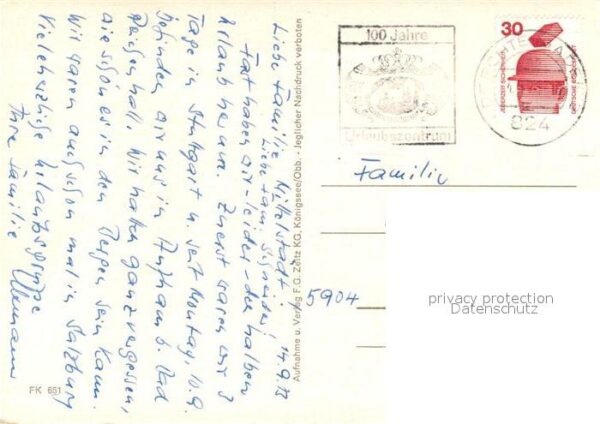 14.9.73
Liebe Familie Mittelstädt!
Liebe Fam. Schneider!
Fast haben wir - leider - den halben
Urlaub herum. Zuerst waren wir 3
Tage in Stuttgart u. seit Montag, 10.9.
befinden wir uns in Aufham b. Bad
Reichenhall. Wir hatten ganz vergessen,
wie schön es in den Bergen sein kann.
Wir waren auch schon mal in Salzburg
Viele herzliche Urlaubsgrüße
Ihre Familie
FK 651
Aufnahme u. Verlag F.G. Zeitz KG, Königssee/Obb. - Jeglicher Nachdruck verboten
100 Jahre
Urlaubszentrum
30
DEUTSCHE BUNDESPOST
824
Familie
5904
privacy protection
Datenschutz